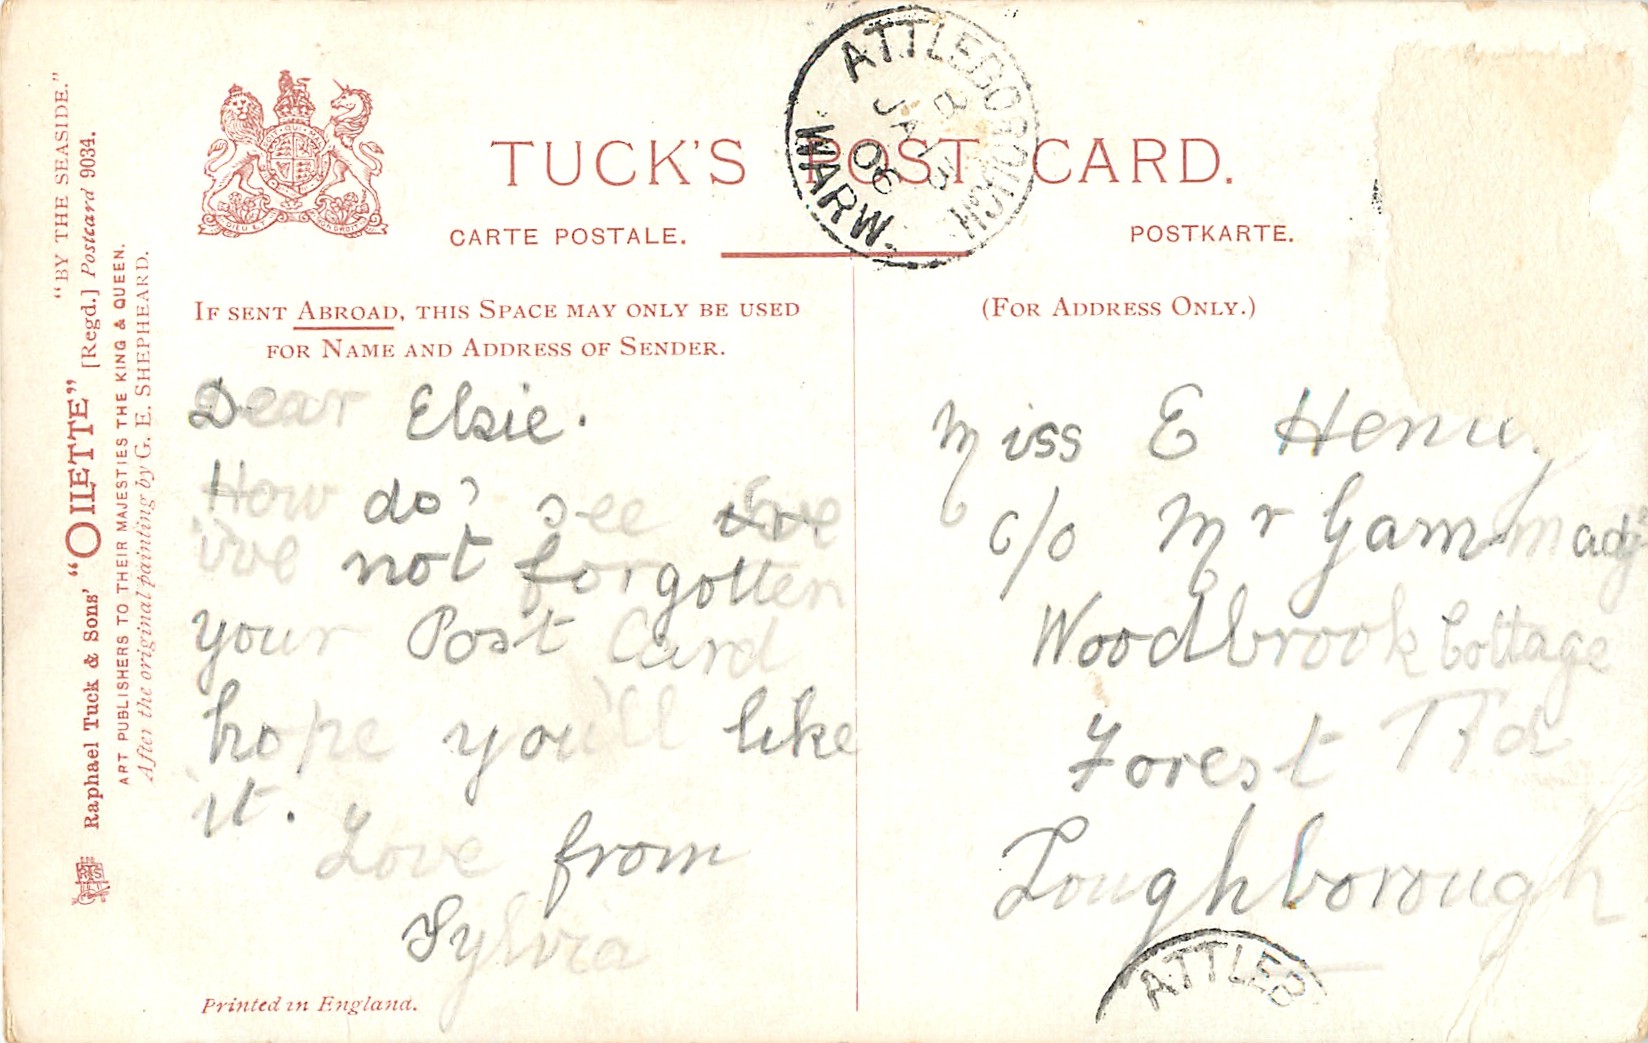 "BY THE SEASIDE."
Raphael Tuck & Sons' "OILETTE" [Regd.] Postcard 9034.
ART PUBLISHERS TO THEIR MAJESTIES THE KING & QUEEN.
After the original painting by G. E. SHEPHEARD.
TUCK'S POST CARD.
CARTE POSTALE.
POSTKARTE.
ATTLEBOROUGH
WARW.
B
JA 15
06
IF SENT ABROAD, THIS SPACE MAY ONLY BE USED
FOR NAME AND ADDRESS OF SENDER.
Dear Elsie.
How do? see
i've not forgotten
your Post Card
hope you'll like
it.
Love from
Sylvia
Printed in England.
(FOR ADDRESS ONLY.)
Miss E
c/o Mr
Woodbrook Cottage
Forest Rd
Loughborough
ATTLEB